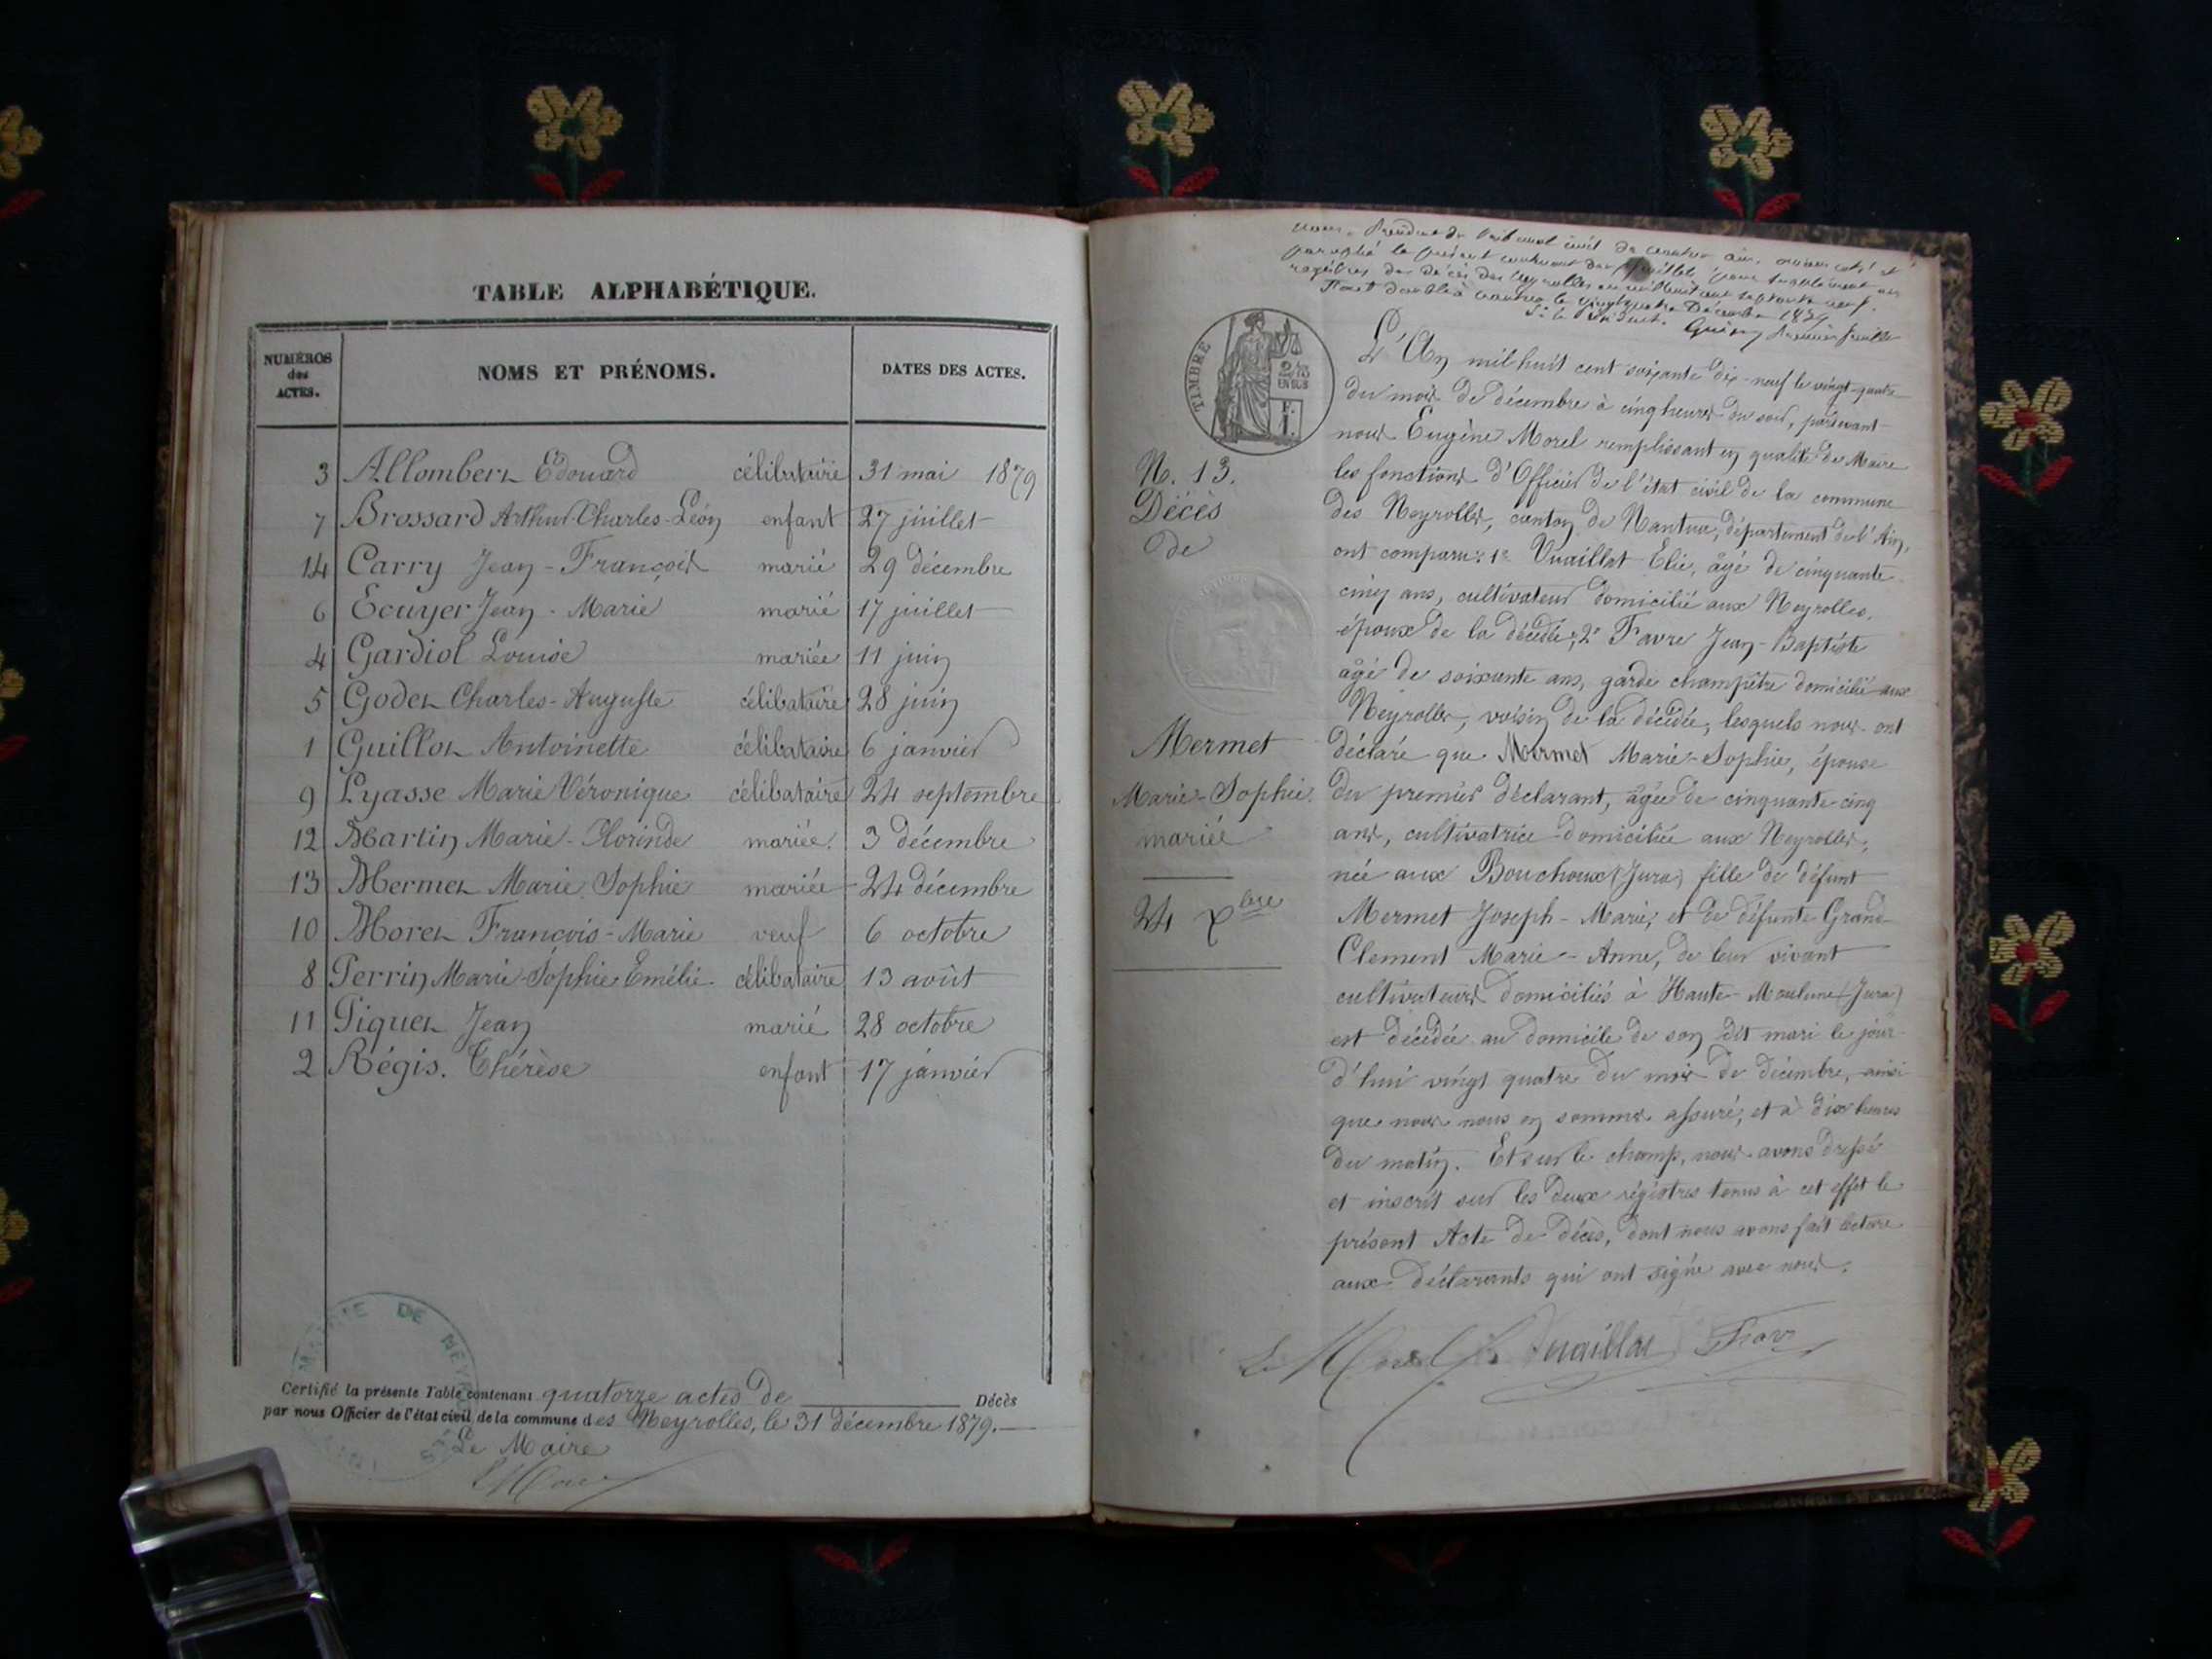 TABLE ALPHABÉTIQUE.
NUMÉROS des ACTES.
NOMS ET PRÉNOMS.
DATES DES ACTES.
3 Allombert Edouard célibataire 31 mai 1879
7 Brossard Arthur Charles-Léon enfant 27 juillet
14 Carry Jean-François marié 29 décembre
6 Ecuyer Jean-Marie marié 17 juillet
4 Gardiol Louise mariée 11 juin
5 Godet Charles-Auguste célibataire 28 juin
1 Guillot Antoinette célibataire 6 janvier
9 Lyasse Marie Véronique célibataire 24 septembre
12 Martin Marie-Florinde mariée. 3 décembre
13 Mermet Marie Sophie mariée 24 décembre
10 Morel François-Marie veuf 6 octobre
8 Perrin Marie-Sophie Emélie célibataire 13 août
11 Piquet Jean marié 28 octobre
2 Régis. Thérèse enfant 17 janvier
MAIRIE DE NEYROLLES
Certifié la présente Table contenant quatorze actes de Décès
par nous Officier de l'état civil de la commune des Neyrolles, le 31 décembre 1879.
Le Maire
registres des décès des Neyrolles
Décembre 1879
TIMBRE
EN SUS
N. 13.
Décès
de
Mermet
Marie-Sophie.
mariée
24 Xbre
L'An mil huit cent soixante dix-neuf le vingt-quatre
du mois de décembre à cinq heures du soir, pardevant
nous Eugène Morel remplissant en qualité de Maire
les fonctions d'Officier de l'état civil de la commune
des Neyrolles, canton de Nantua, département de l'Ain,
ont comparu: 1º Vuaillat Elie, âgé de cinquante
cinq ans, cultivateur domicilié aux Neyrolles,
époux de la décédée; 2º Favre Jean-Baptiste
âgé de soixante ans, garde champêtre domicilié aux
Neyrolles, voisin de la décédée, lesquels nous ont
déclaré que Mermet Marie-Sophie, épouse
du premier déclarant, âgée de cinquante-cinq
ans, cultivatrice domiciliée aux Neyrolles,
née aux Bouchoux (Jura) fille de défunt
Mermet Joseph-Marie, et de défunte Grand
Clement Marie-Anne, de leur vivant
cultivateurs domiciliés à Haute-Moulune (Jura)
est décédée au domicile de son dit mari le jour
d'hui vingt quatre du mois de décembre, ainsi
que nous nous en sommes assuré, et à dix heures
du matin. Et sur le champ, nous avons dressé
et inscrit sur les deux régistres tenus à cet effet le
présent Acte de décès, dont nous avons fait lecture
aux déclarants qui ont signé avec nous.
E Morel Vuaillat Favre